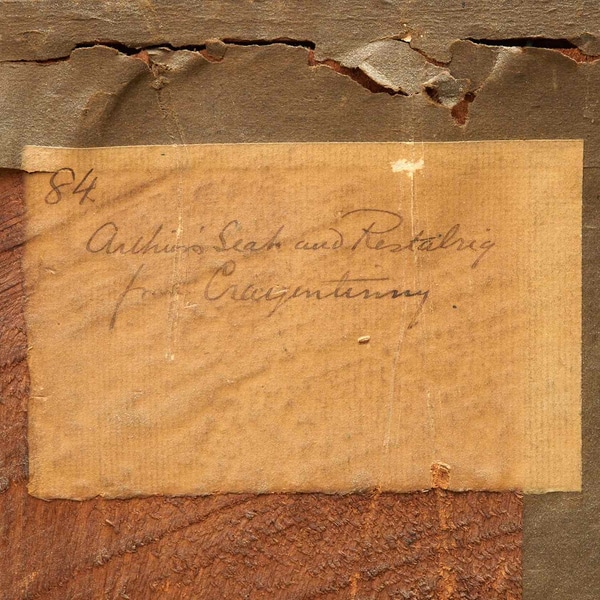 84
Arthur's Seat and Restalrig
from Craigentinny.